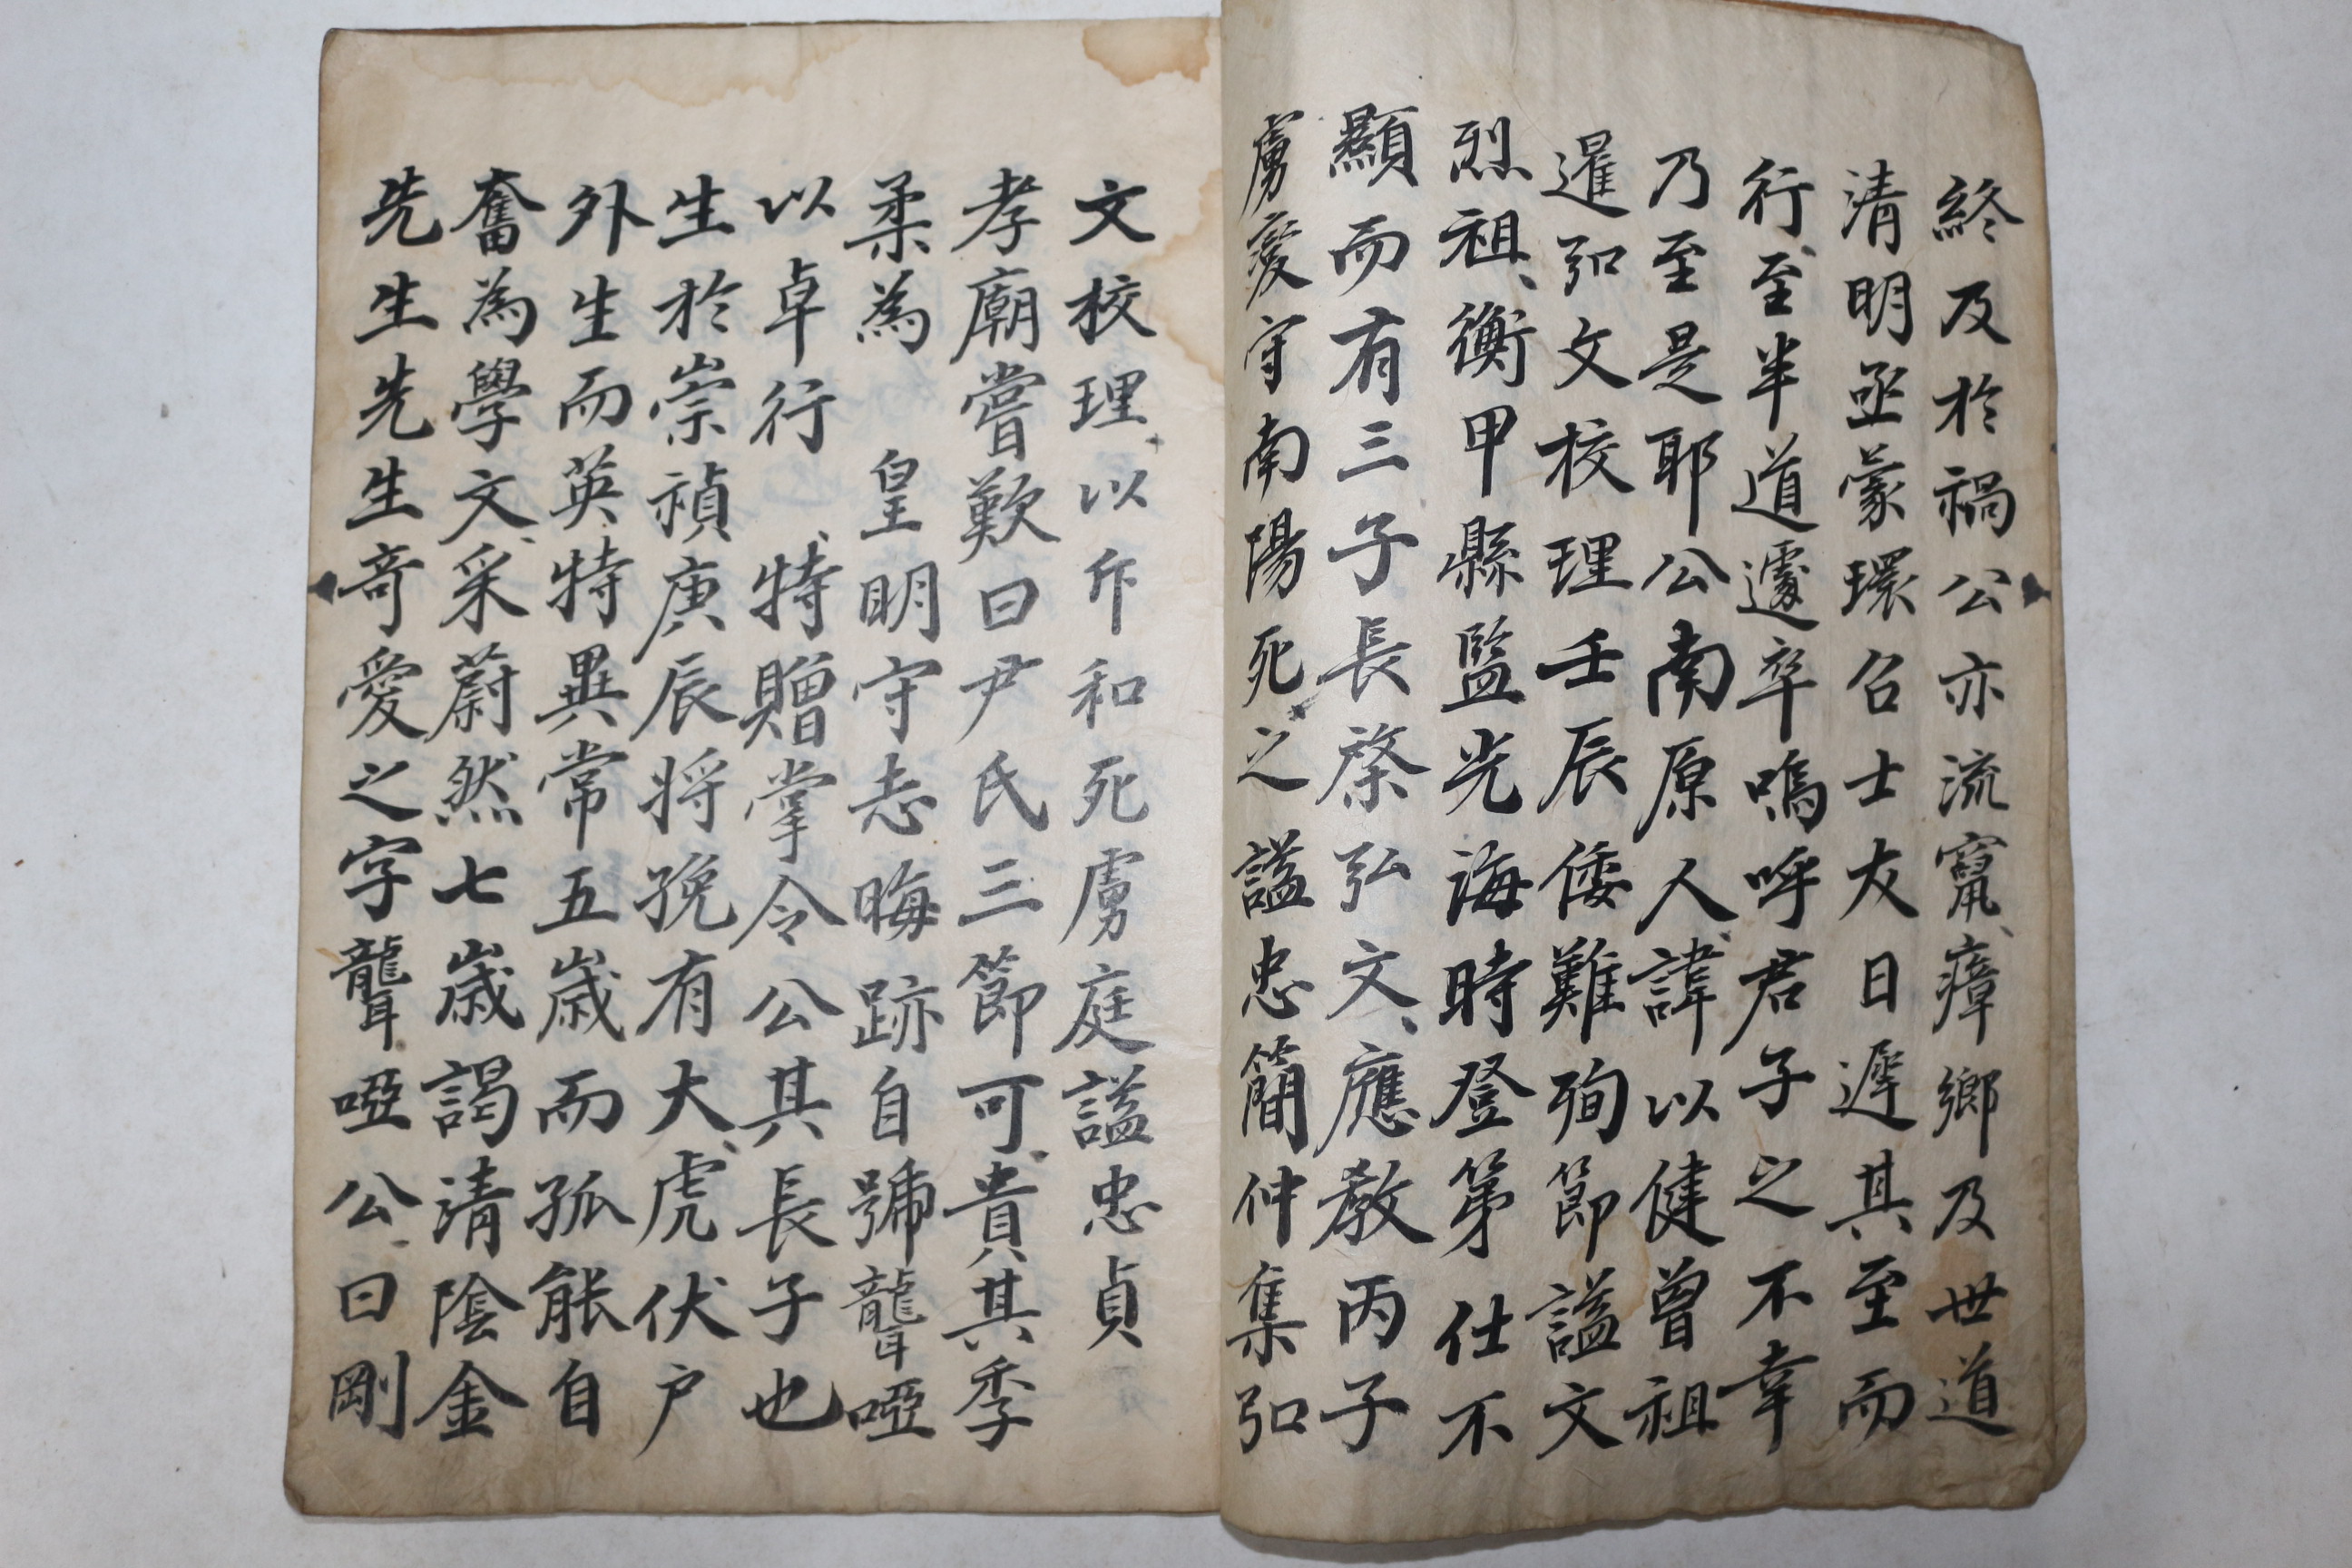 終及於禍公亦流竄瘴鄉及世道
清明亟蒙環召士友日遲其至而
行至半道遽卒嗚呼君子之不幸
乃至是耶公南原人諱以健曾祖
暹弘文校理壬辰倭難殉節謚文
烈祖衡甲縣監光海時登第仕不
顯而有三子長棨弘文應教丙子
虜變守南陽死之謚忠簡仲集弘
文校理以斥和死虜庭謚忠貞
孝廟嘗歎曰尹氏三節可貴其季
柔為 皇明守志晦跡自號聾啞
以卓行 特贈掌令公其長子也
生於崇禎庚辰將娩有大虎伏戶
外生而英特異常五歲而孤能自
奮為學文采蔚然七歲謁清陰金
先生先生奇愛之字聾啞公曰剛